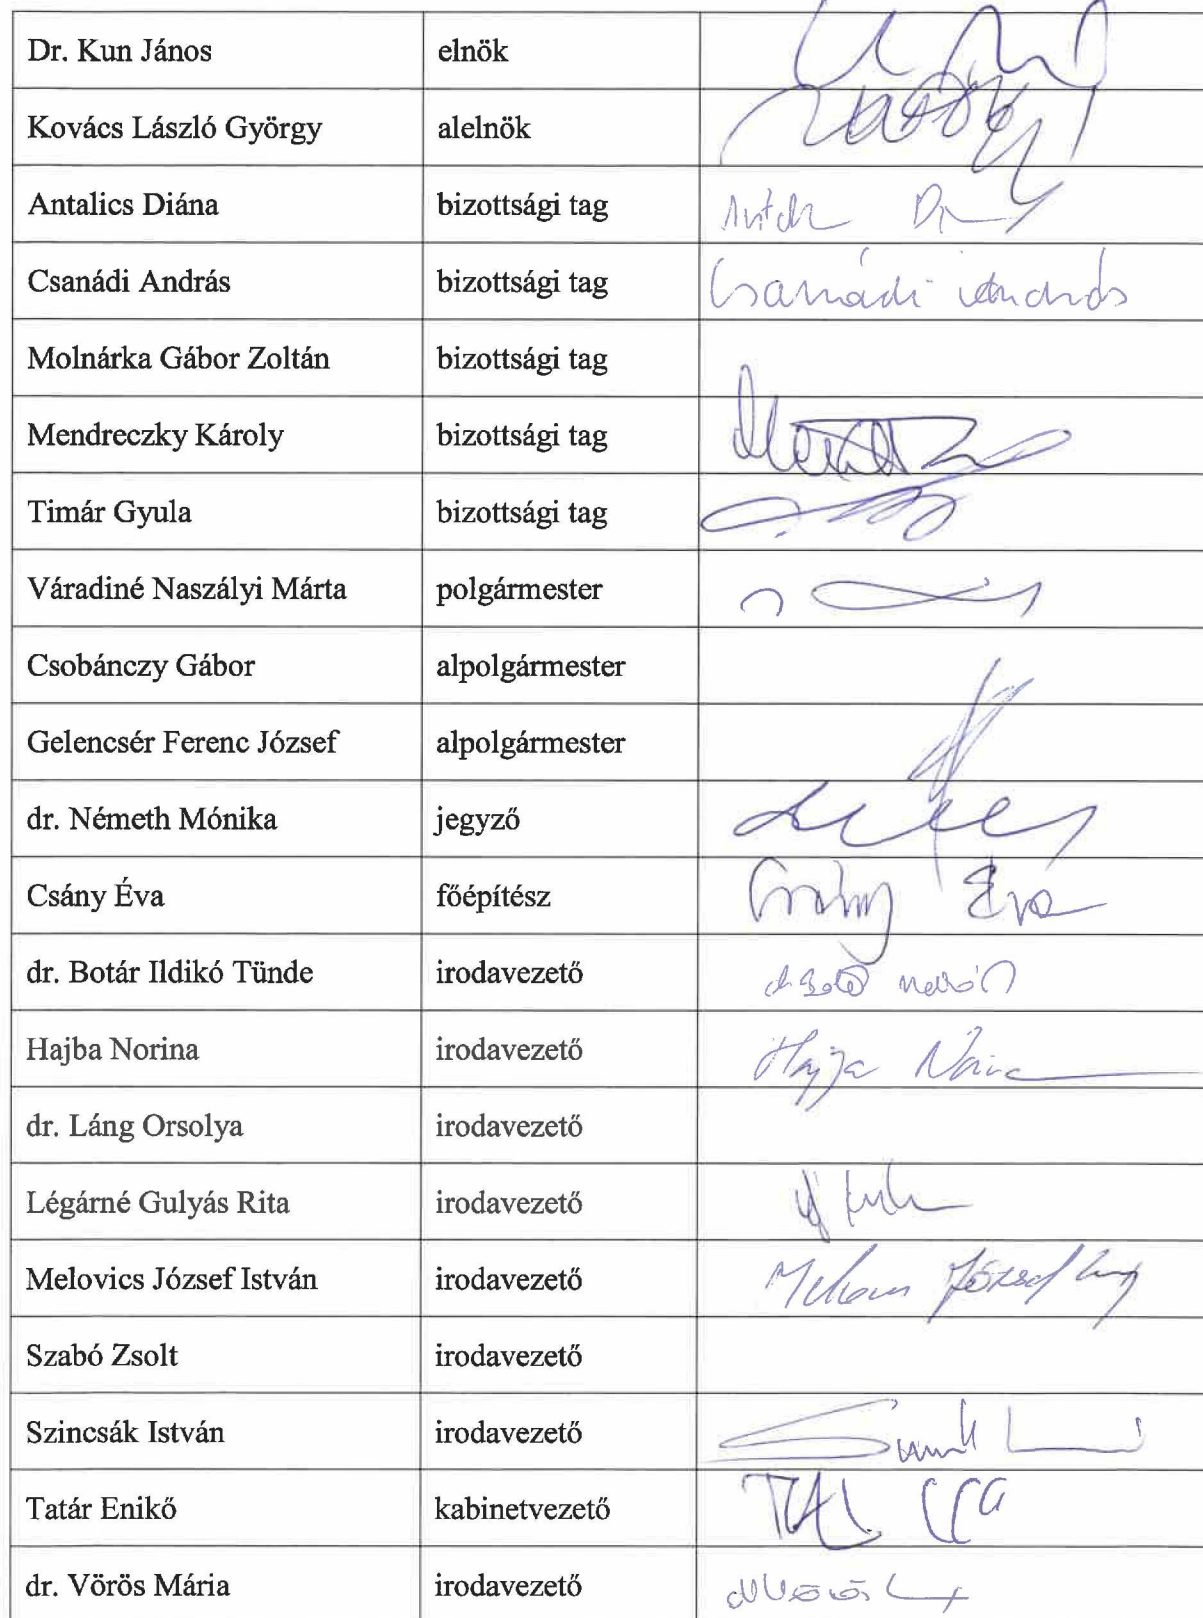 Dr. Kun János elnök
Kovács László György alelnök
Antalics Diána bizottsági tag
Csanádi András bizottsági tag Csanádi András
Molnárka Gábor Zoltán bizottsági tag
Mendreczky Károly bizottsági tag
Timár Gyula bizottsági tag
Váradiné Naszályi Márta polgármester
Csobánczy Gábor alpolgármester
Gelencsér Ferenc József alpolgármester
dr. Németh Mónika jegyző
Csány Éva főépítész Csány Éva
dr. Botár Ildikó Tünde irodavezető
Hajba Norina irodavezető
dr. Láng Orsolya irodavezető
Légárné Gulyás Rita irodavezető
Melovics József István irodavezető
Szabó Zsolt irodavezető
Szincsák István irodavezető
Tatár Enikő kabinetvezető
dr. Vörös Mária irodavezető